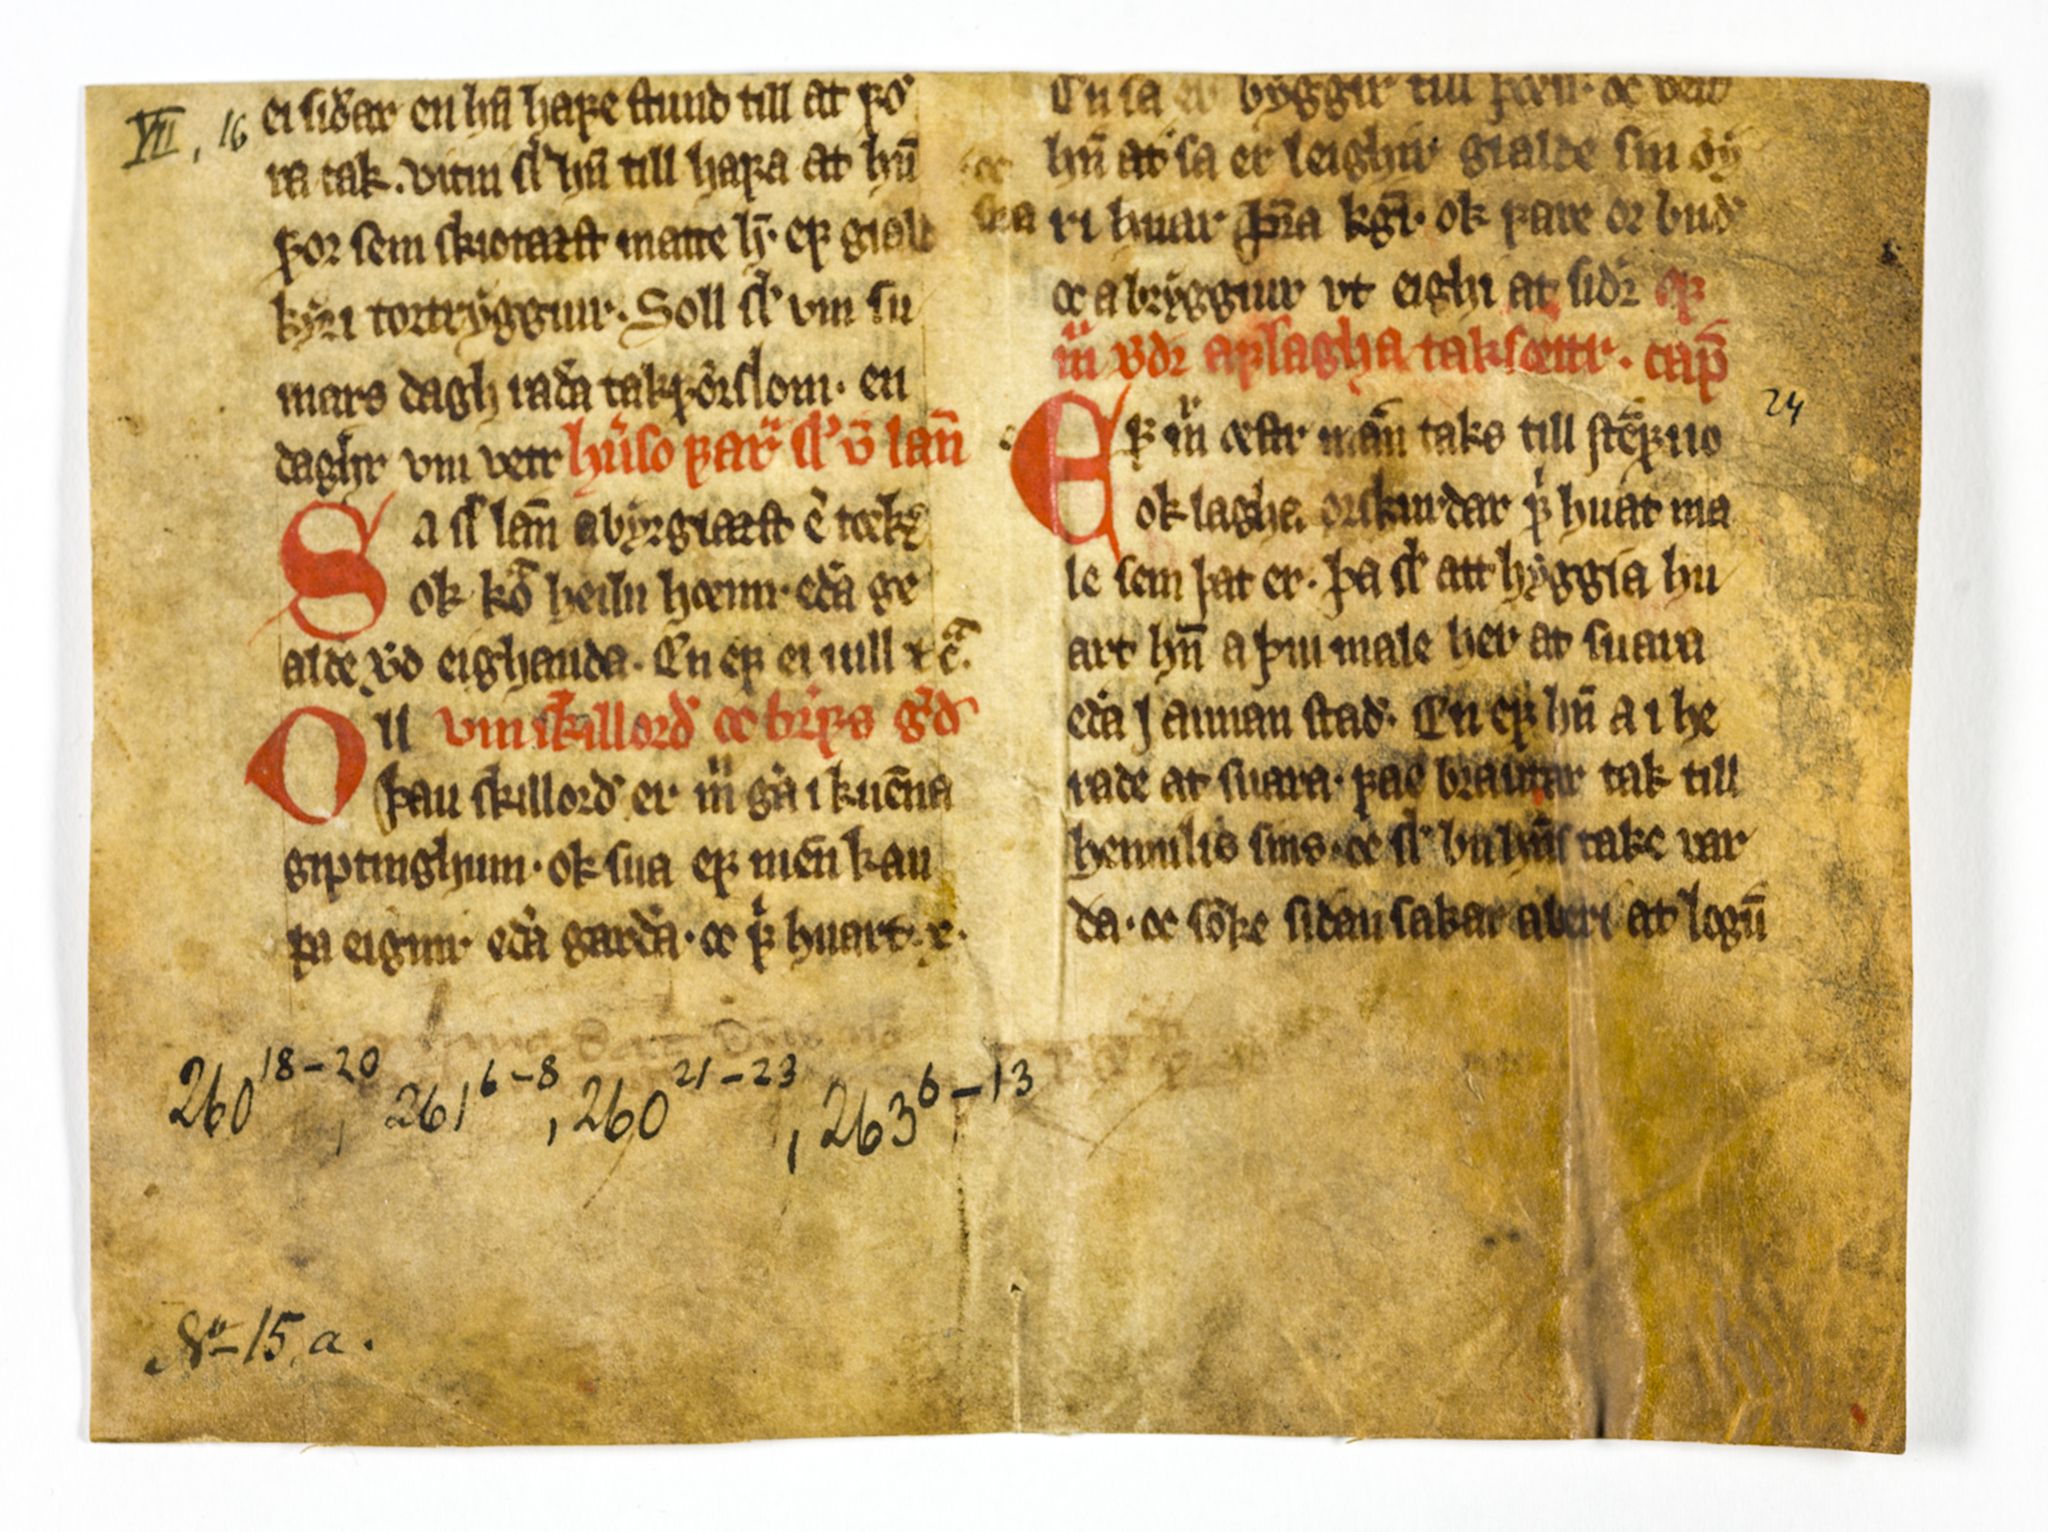 VII, 16
ei siðar en hn̄ hafe stund till at fo
ra tak. vitni sl̍ hn̄ till hafa at hn̄
for sem skiotazst matte h̄. ef giald
kyri tortryggiur. Soll sl̍ vm su
mars dagh raða takforslom. en
daghr vm vetr hu̍so far̍ sl̍ v̄ lan̄
Sa sl̍ lan̄ abyrgiazst e̍ tœkr
ok ko̅ heilu hœim. eða ge
alde v̍d eighanda. En ef ei uill
Oll vm skillord̍ oc br̍fs g̍d̍
þau skillord̍ er m̄ g̍a i kuen̄a
giptinghum. ok sua ef men̄ kau
pa eignir eða garða. oc þ̍ huart. e.
En sa er byggir till
hn̄ at sa er leighir gialde sin øy
ri huar þr̄a kgi. ok fare or bud̍
oc a bryggiur vt eighi at sidr ef
m̄ v̍dr aflagha taksœttr. cap̄
24
Ef m̄ œftr man̄ taks till stefno
ok lagha orskurdar þ̍ huat ma
le sem þat er. þa sl̍ att hyggia hu
art hn̄ a þui male her at suara
eða J annan stad̍. En ef hn̄ a i he
rade at suara. fae brautar tak till
heimilis sins. oc sl̍ hn̄s take var
da. oc søke sidan sakar aberi at logū
260 18-20, 261 6-8, 260 21-23, 263 6-13
No 15, a.